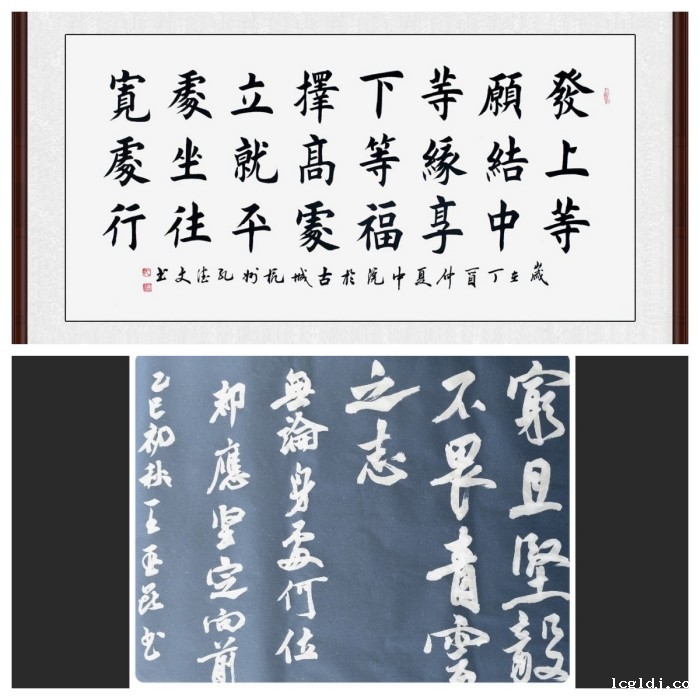 發上等
願結中
等緣享
下等福
擇高處
立就平
處坐往
寬處行
歲在丁酉仲夏中浣於古城杭州孔德文書
窮且堅毅
不畏青雲
之志
無論身處何位
却應坚定向前
乙巳初秋王亞書
lcgldj.com